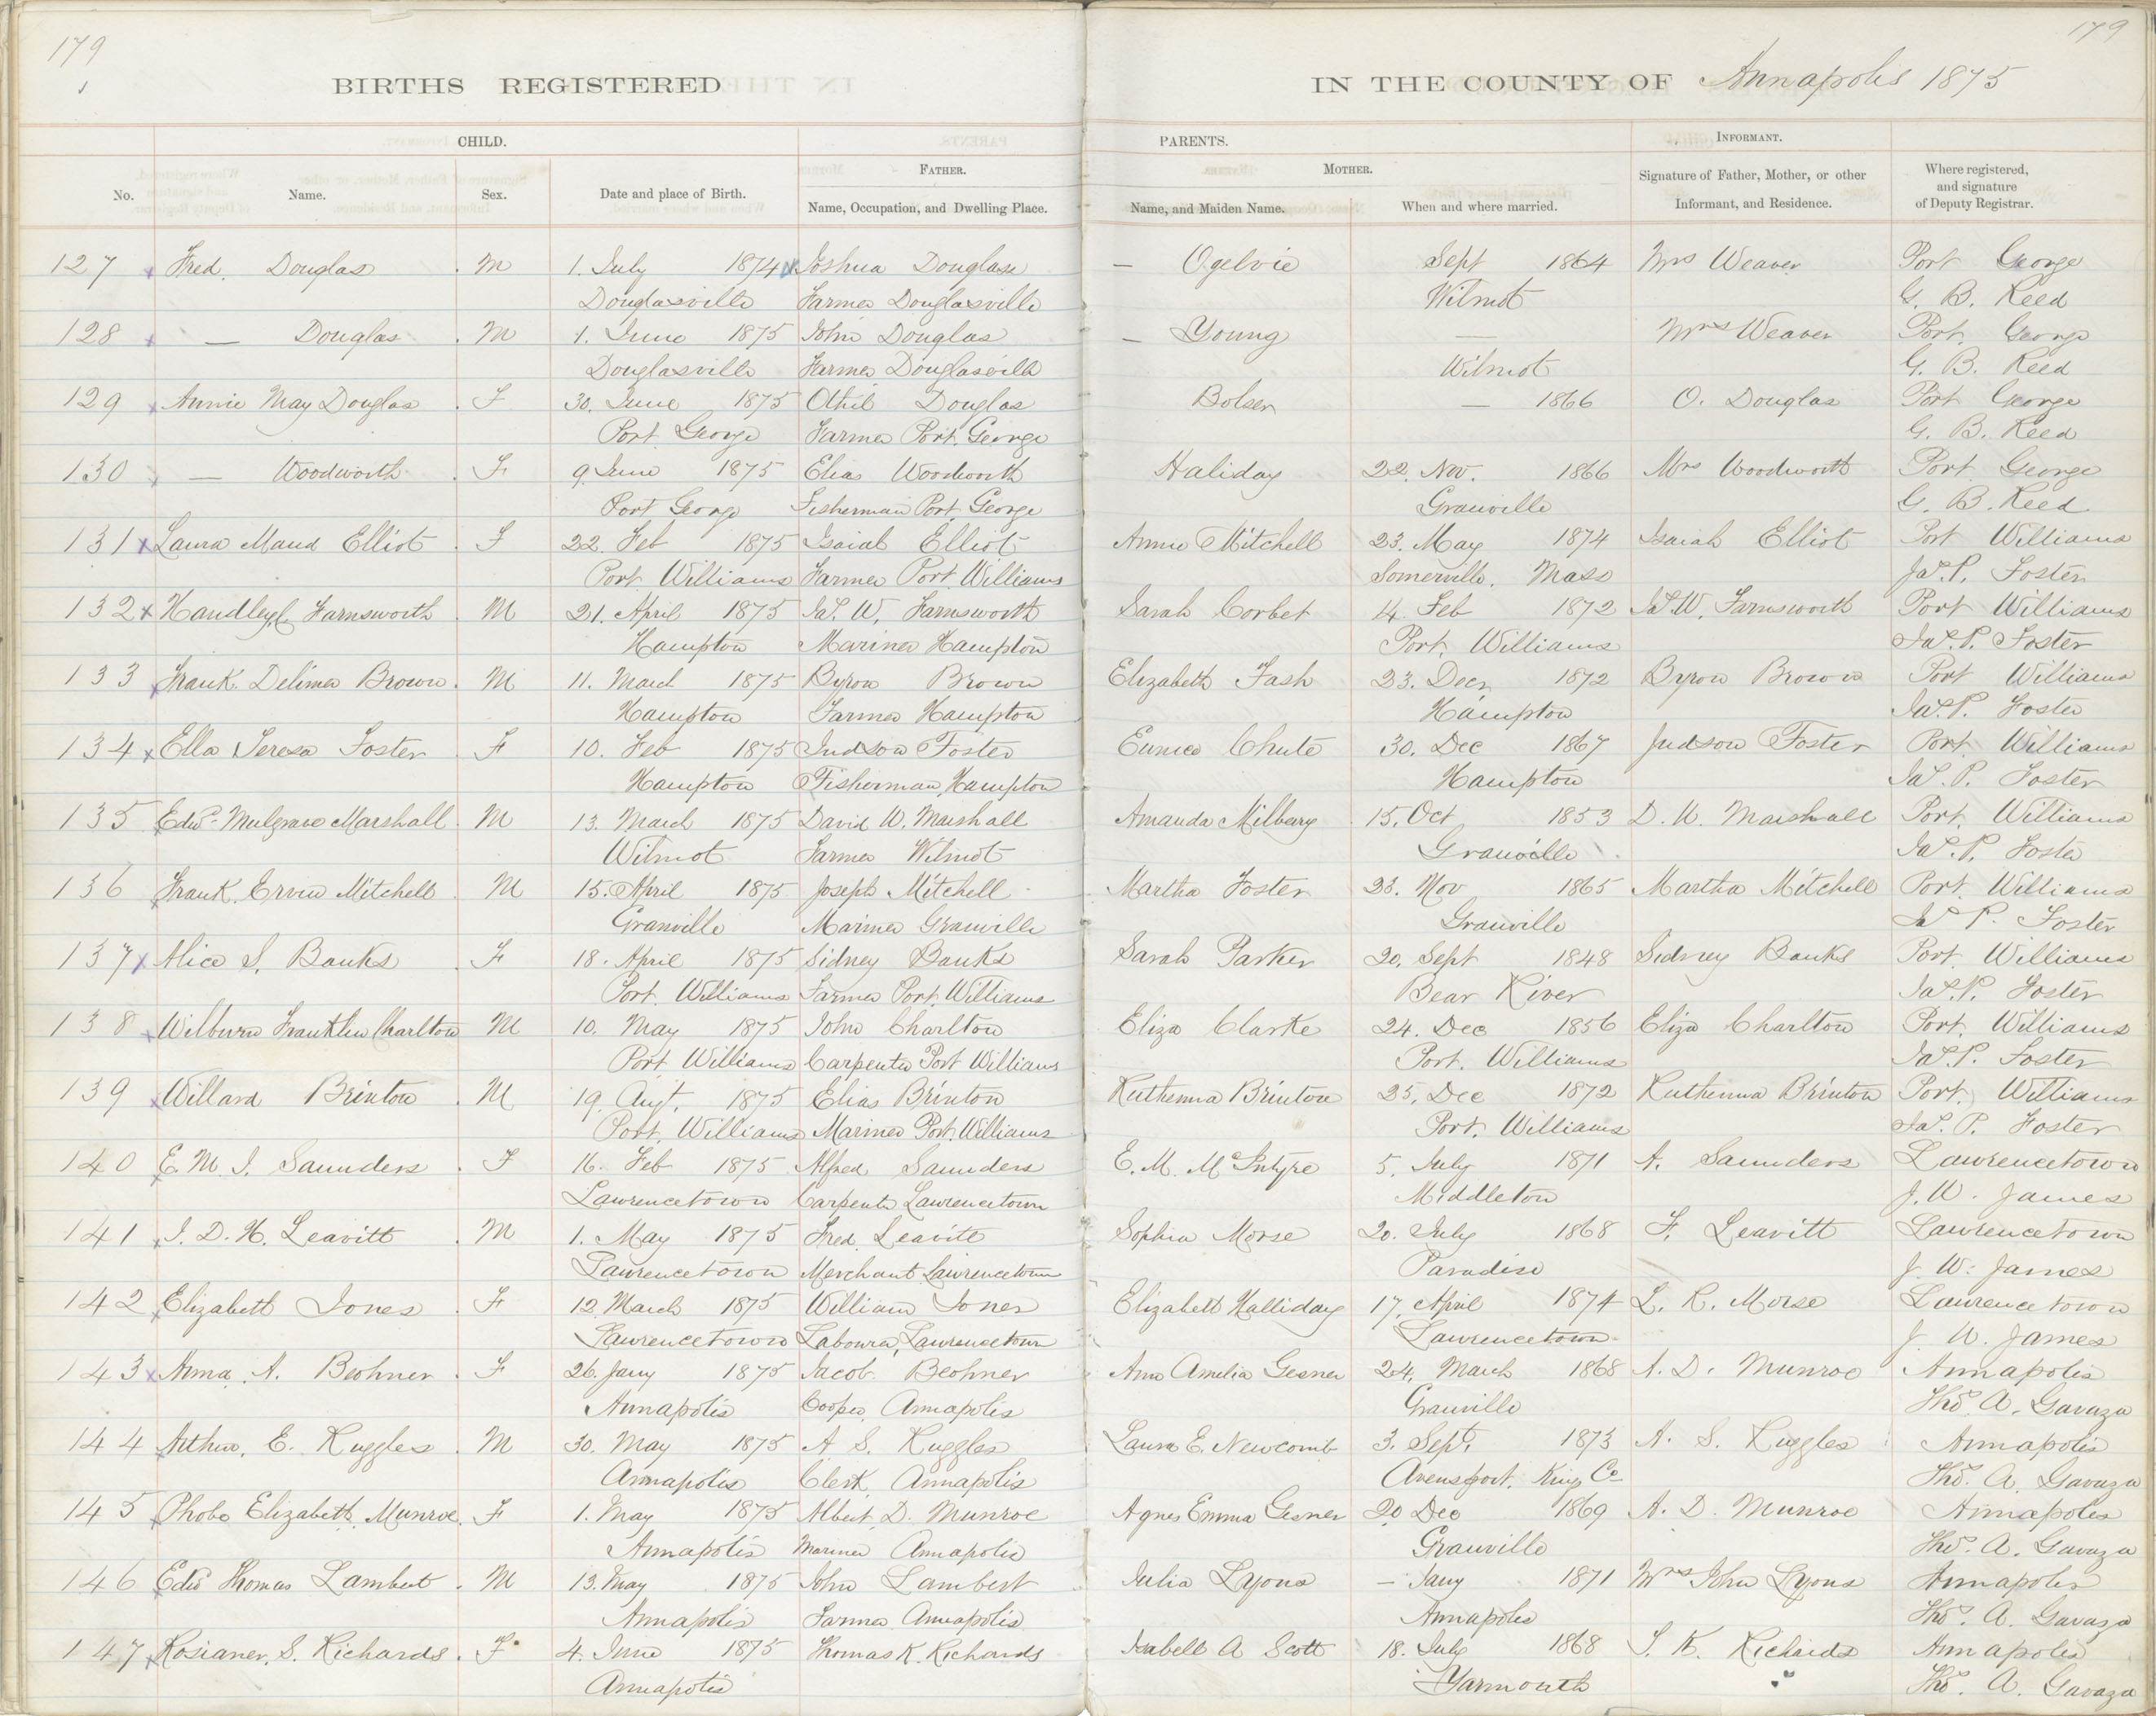 179
179
BIRTHS REGISTERED
IN THE COUNTY OF Annapolis 1875
CHILD.
PARENTS.
INFORMANT.
No.
Name.
Sex.
Date and place of Birth.
FATHER.
Name, Occupation, and Dwelling Place.
MOTHER.
Name, and Maiden Name.
When and where married.
Signature of Father, Mother, or other Informant, and Residence.
Where registered, and signature of Deputy Registrar.
127 Fred. Douglas M 1. July 1874 Joshua Douglass — Ogelvie Sept 1864 Mrs Weaver Port George
Douglasville Farmer Douglasville Wilmot G. B. Reed
128 — Douglas M 1. June 1875 John Douglas — Young — Mrs Weaver Port George
Douglasville Farmer Douglasville Wilmot G. B. Reed
129 Annie May Douglas F 30. June 1875 Douglas Bolser — 1866 O. Douglas Port George
Port George Farmer Port George G. B. Reed
130 — Woodworth F 9 June 1875 Elias Woodworth Haliday 22. Nov. 1866 Mrs Woodworth Port George
Port George Fisherman Port George Granville G. B. Reed
131 Laura Maud Elliot F 22. Feb 1875 Isaiah Elliot Annie Mitchell 23. May 1874 Isaiah Elliot Port Williams
Port Williams Farmer Port Williams Somerville, Mass Jas. P. Foster
132 Handley Farnsworth M 21. April 1875 Jas. W. Farnsworth Sarah Corbet 4. Feb 1872 Jas. W. Farnsworth Port Williams
Hampton Mariner Hampton Port Williams Jas. P. Foster
133 Frank Delimer Brown M 11. March 1875 Byron Brown Elizabeth Fash 23. Decr 1872 Byron Brown Port Williams
Hampton Farmer Hampton Hampton Jas. P. Foster
134 Ella Teresa Foster F 10. Feb 1875 Judson Foster Eunice Chute 30. Dec 1867 Judson Foster Port Williams
Hampton Fisherman, Hampton Hampton Jas. P. Foster
135 Edwd Mulgrave Marshall M 13. March 1875 David W. Marshall Amanda Milbery 15. Oct 1853 D. W. Marshall Port Williams
Wilmot Farmer Wilmot Granville Jas. P. Foster
136 Frank Ervin Mitchell M 15. April 1875 Joseph Mitchell Martha Foster 23. Nov 1865 Martha Mitchell Port Williams
Granville Mariner Granville Granville Jas P. Foster
137 Alice S. Banks F 18. April 1875 Sidney Banks Sarah Parker 20. Sept 1848 Sidney Banks Port Williams
Port Williams Farmer Port Williams Bear River Jas. P. Foster
138 Wilburn Franklin Charlton M 10. May 1875 John Charlton Eliza Clarke 24. Dec 1856 Eliza Charlton Port Williams
Port Williams Carpenter Port Williams Port Williams Jas. P. Foster
139 Willard Brinton M 19. Augt. 1875 Elias Brinton Ruthenna Brinton 25. Dec 1872 Ruthenna Brinton Port Williams
Port Williams Mariner Port Williams Port Williams Jas. P. Foster
140 E. M. J. Saunders F 16. Feb 1875 Alfred Saunders E. M. McIntyre 5. July 1871 A. Saunders Lawrencetown
Lawrencetown Carpenter Lawrencetown Middleton J. W. James
141 J. D. H. Leavitt M 1. May 1875 Fred Leavitt Sophia Morse 20. July 1868 F. Leavitt Lawrencetown
Lawrencetown Merchant Lawrencetown Paradise J. W. James
142 Elizabeth Jones F 12 March 1875 William Jones Elizabeth Halliday 17. April 1874 L. R. Morse Lawrencetown
Lawrencetown Labourer, Lawrencetown Lawrencetown J. W. James
143 Anna A. Beohner F 26. Jany 1875 Jacob Beohner Ann Amelia Gesner 24. March 1868 A. D. Munroe Annapolis
Annapolis Cooper, Annapolis Granville Thos. A. Gavaza
144 Arthur, E. Ruggles M 30. May 1875 A S. Ruggles Laura E. Newcomb 3. Sept. 1873 A. S. Ruggles Annapolis
Annapolis Clerk, Annapolis Avensport, King Co Thos. A. Gavaza
145 Phobe Elizabeth Munroe F 1. May 1875 Albert D. Munroe Agnes Emma Gesner 20 Dec 1869 A. D. Munroe Annapolis
Annapolis Mariner Annapolis Granville Thos. A. Gavaza
146 Edwd Thomas Lambert M 13. May 1875 John Lambert Julia Lyons — Jany 1871 Mrs John Lyons Annapolis
Annapolis Farmer Annapolis Annapolis Thos. A. Gavaza
147 Rosianer. S. Richards F 4. June 1875 Thomas K. Richards Isabell A Scott 18. July 1868 T. K. Richards Annapolis
Annapolis Yarmouth " Thos. A. Gavaza